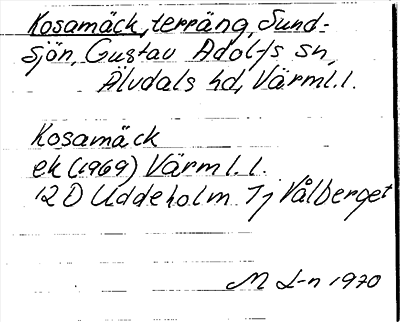 Kosamäck, terräng, Sund-
sjön, Gustav Adolfs sn,
Älvdals hd, Värml.l.
Kosamäck
ek (1969) Värml.l.
12 D Uddeholm 7j Vålberget
M L-n 1970